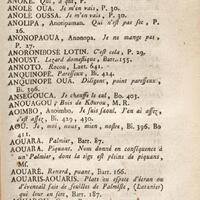 ANOKÉ. Qui, à qui, P.
ANOLE OUA. Je m'en vais, P. 30.
ANOLE OUSSA. Je m'en vais, P. 30.
ANOLIPA, Anoripaman. Qui n'est pas sec, P. 16.
ANONOPAOUA, Anonopa. Je ne mange pas, P. 27.
ANORONIBOSE LOTIN. C'est cela, P. 29.
ANOUSY. Lezard domestique, Batt. 155.
ANNOTO. Rocou, Laet. 642.
ANQUINOPÉ. Paresseux, Bi. 424.
ANQUINOPÉ OUA. Diligent, point paresseux, Bi. 396.
ANSEGOUCA. Je chauffe le cul, Bo. 403.
ANOUAGOU? Bois de Kourou, M. R.
AOIMBO, Anoimbo. Je suis saoul. J'en ai assez, c'est assez, Bi. 429, 430.
AOU. Je, moi, nous, mien, nostre, Bi. 396. Bo 411.
AOUARA. Palmier, Batt. 87.
AOUARA. Piquant. Nom donné en conséquence à un Palmier, dont la tige est pleine de piquans, M.
AOUARÉ. Renard, puant, Batt. 166.
AOUARIS-AOUARIS. Plats ou espece d'écran ou d'éventail fait de feuilles de Palmiste, (Latanier) qui leur en sert, Batt. 187.